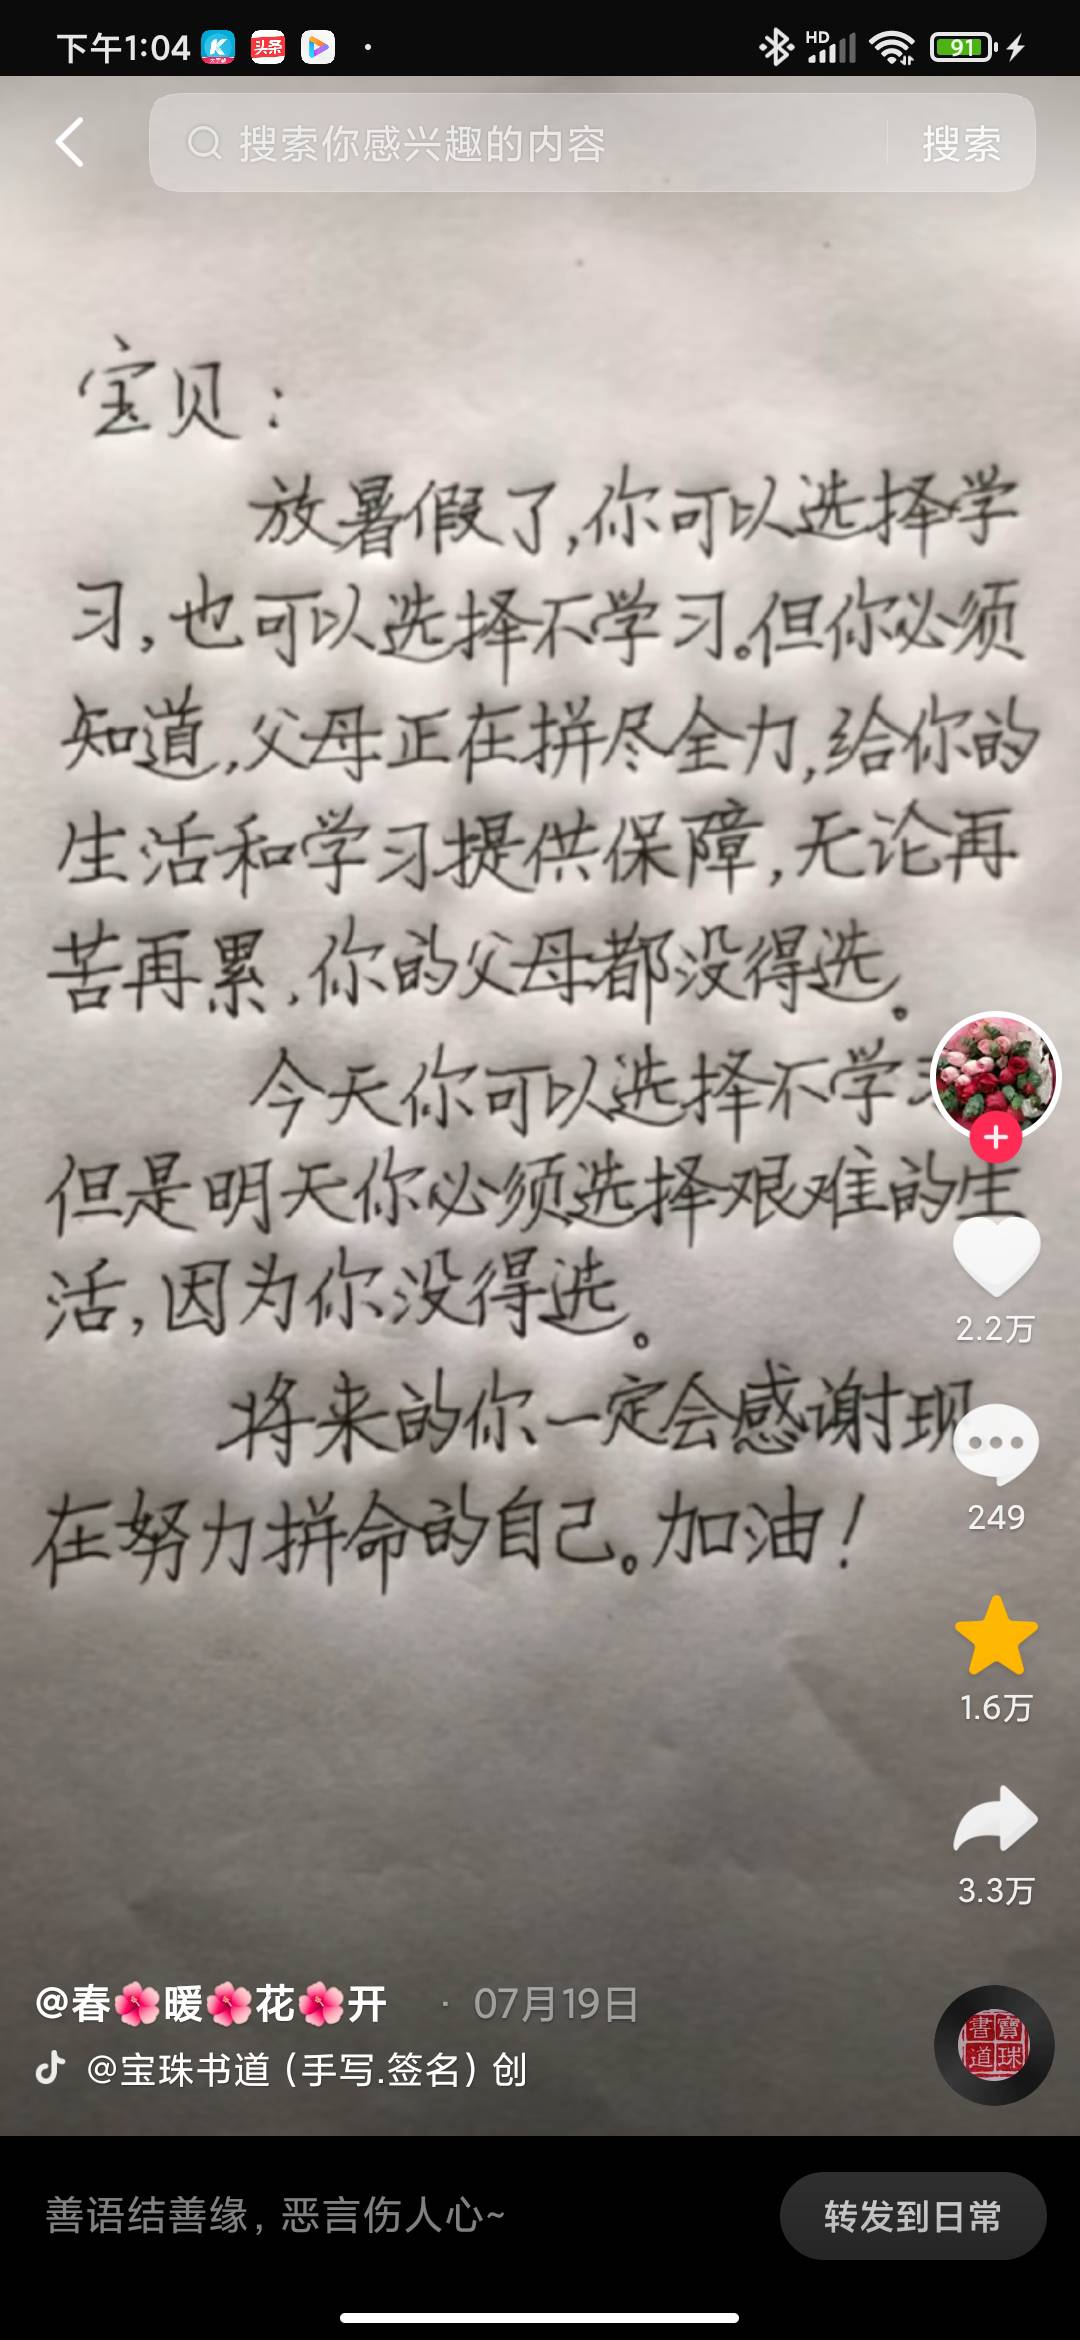 下午1:04
HD
91
搜索你感兴趣的内容
搜索
宝贝：
放暑假了，你可以选择学
习，也可以选择不学习。但你必须
知道，父母正在拼尽全力，给你的
生活和学习提供保障，无论再
苦再累，你的父母都没得选。
今天你可以选择不学习
但是明天你必须选择艰难的生
活，因为你没得选。
将来的你一定会感谢现
在努力拼命的自己。加油！
2.2万
249
1.6万
3.3万
@春🌺暖🌺花🌺开 · 07月19日
@宝珠书道（手写.签名）创
寶珠書道
善语结善缘，恶言伤人心~
转发到日常
头条